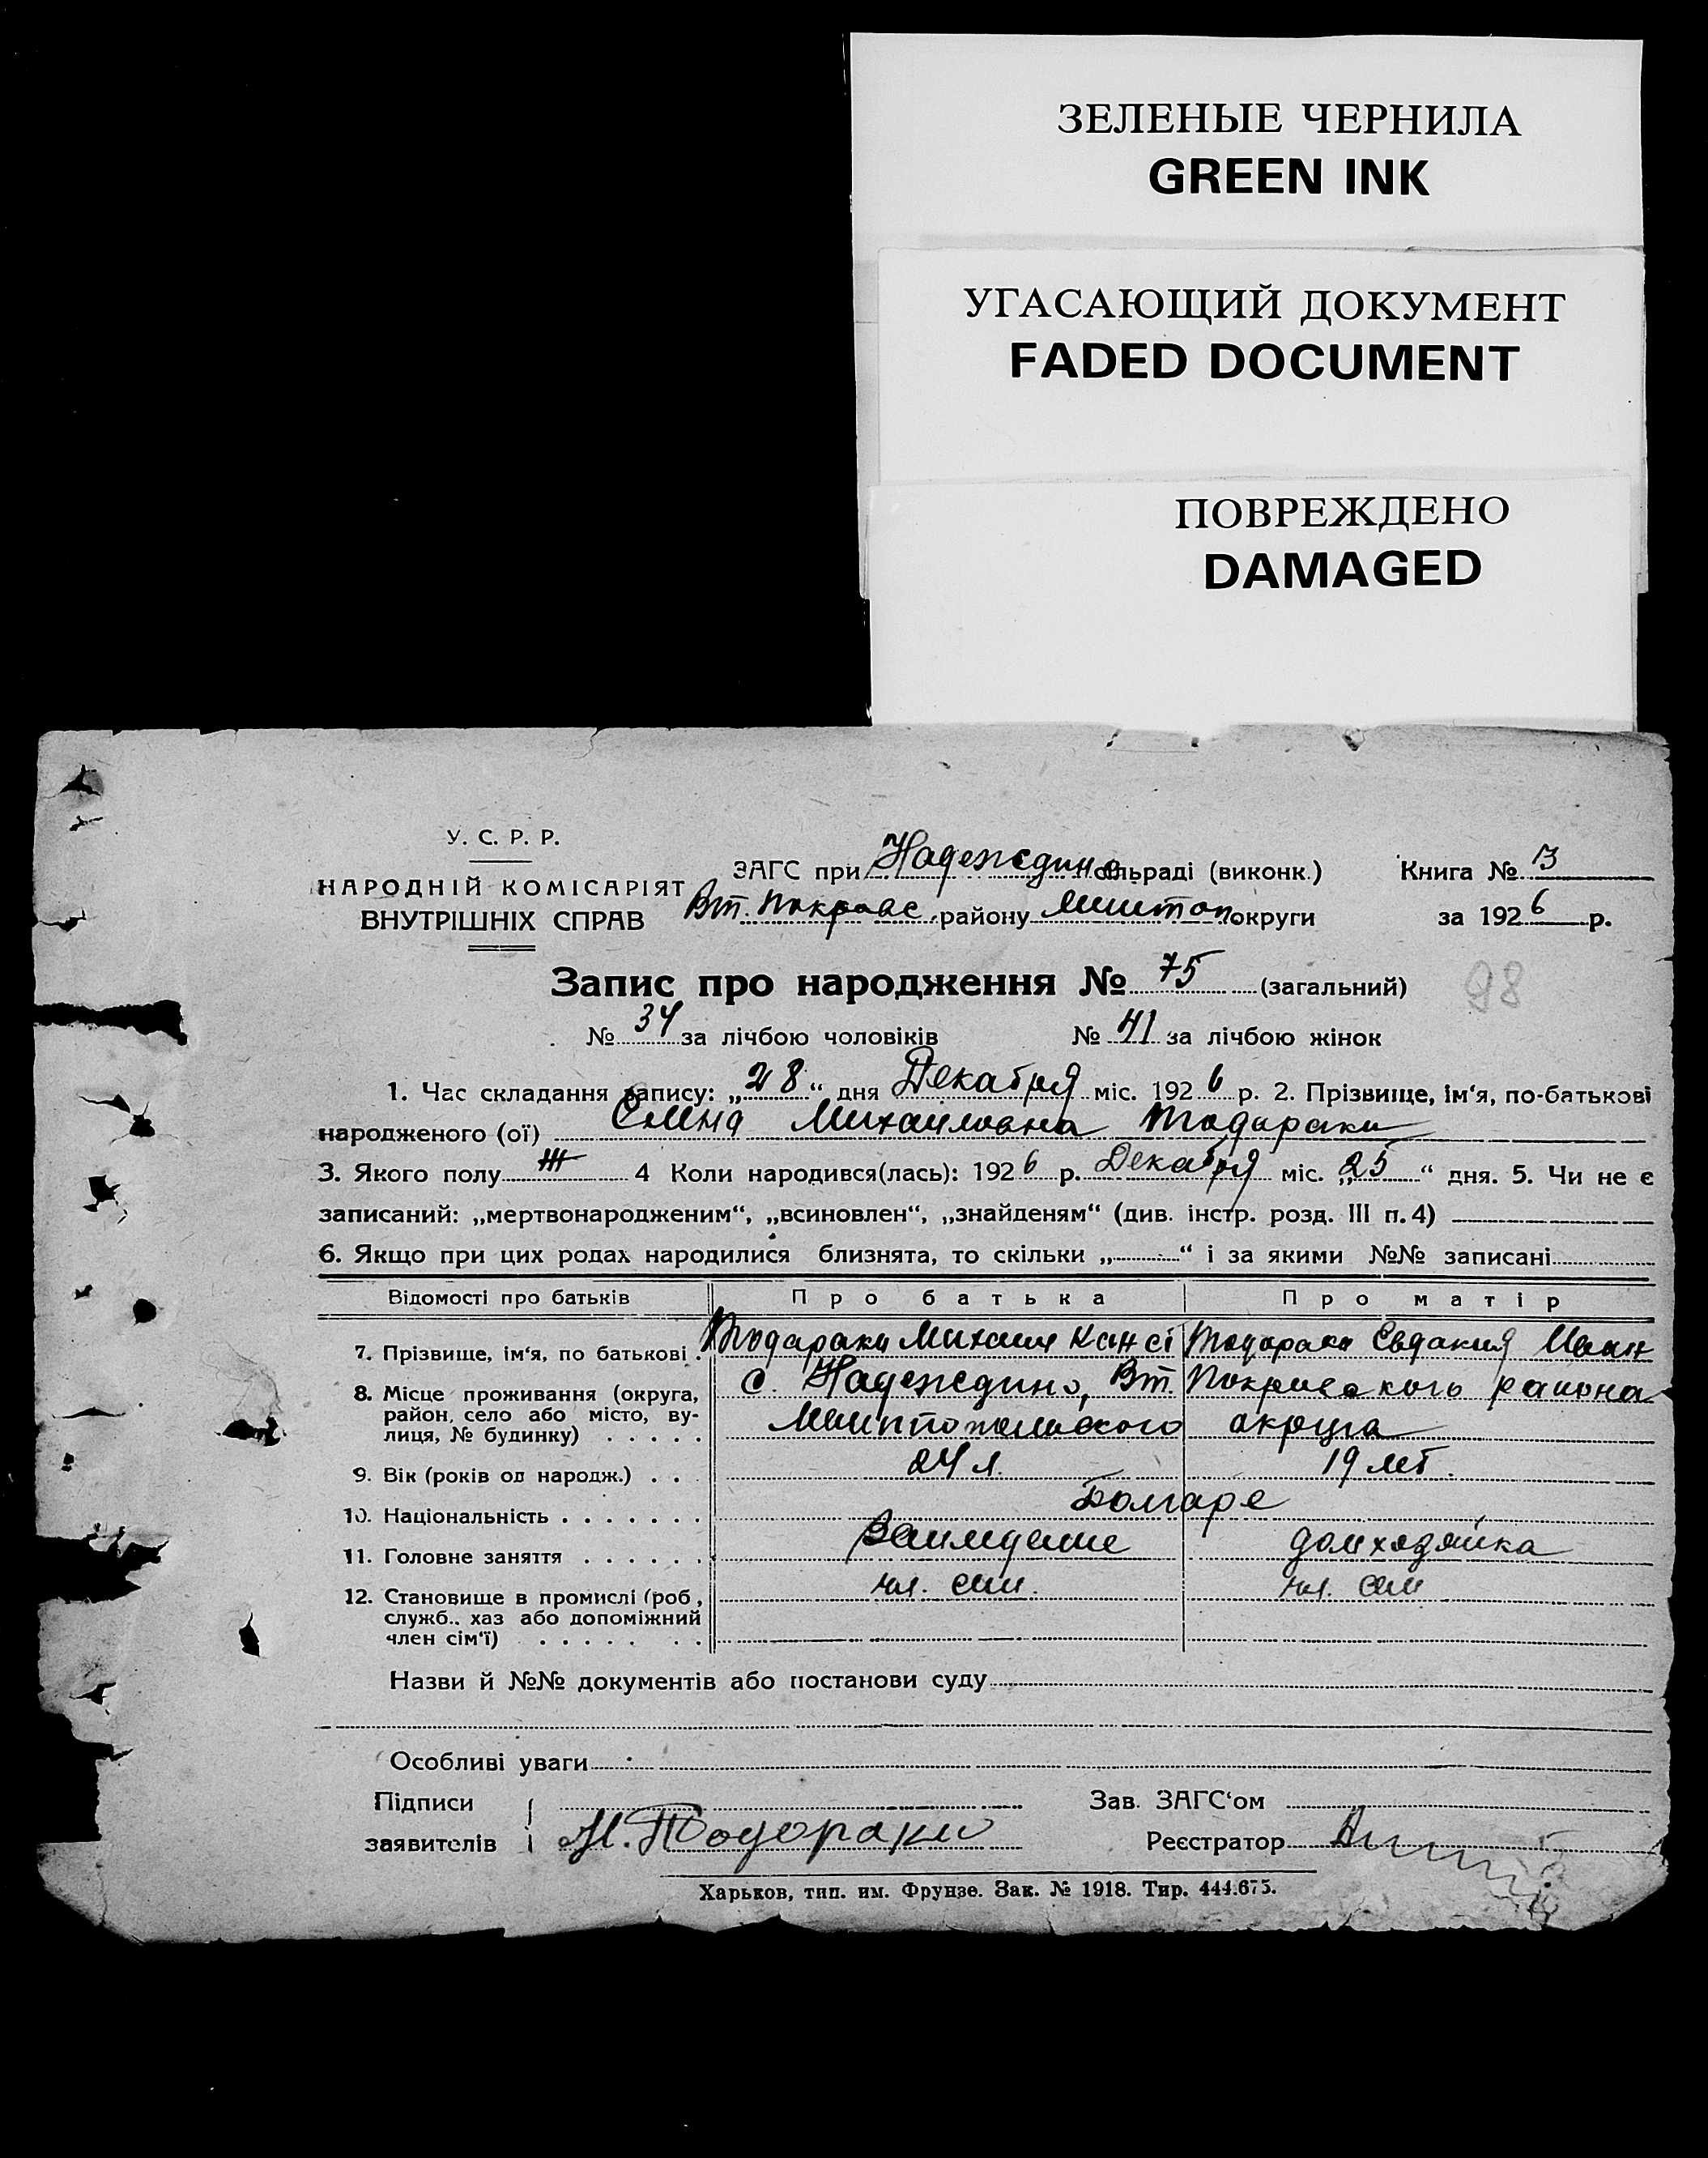 ЗЕЛЕНЫЕ ЧЕРНИЛА
GREEN INK
УГАСАЮЩИЙ ДОКУМЕНТ
FADED DOCUMENT
ПОВРЕЖДЕНО
DAMAGED
У. С. Р. Р.
НАРОДНІЙ КОМІСАРІЯТ
ВНУТРІШНІХ СПРАВ
ЗАГС при Надеждино сільраді (виконк.) Книга № 3
Вт. Покровс. району Мелитоп округи за 1926 р.
Запис про народження № 75 (загальний) 98
№ 34 за лічбою чоловіків № 41 за лічбою жінок
1. Час складання запису: „28“ дня Декабря міс. 1926 р. 2. Прізвище, ім'я, по-батькові
народженого (ої) Елена Михайловна Тодараки
3. Якого полу Ж 4 Коли народився(лась): 1926 р. Декабря міс. „25“ дня. 5. Чи не є
записаний: „мертвонародженим“, „всиновлен“, „знайденям“ (див. інстр. розд. III п. 4)
6. Якщо при цих родах народилися близнята, то скільки „ “ і за якими №№ записані
Відомості про батьків Про батька Про матір
7. Прізвище, ім'я, по батькові Тодараки Михаил Конст Тодараки Евдакия Иван
8. Місце проживання (округа, район, село або місто, вулиця, № будинку) с. Надеждино, Вт. Покровского района
Мелитопольского округа
9. Вік (років од народж.) 24 л. 19 лет.
10. Національність Болгаре
11. Головне заняття Земледелие домхозяйка
12. Становище в промислі (роб, служб., хаз або допоміжний член сім'ї) чл. сем. чл. сем
Назви й №№ документів або постанови суду
Особливі уваги
Підписи Зав. ЗАГС'ом
заявителів М. Тодораки Реєстратор
Харьков, тип. им. Фрунзе. Зак. № 1918. Тир. 444.675.